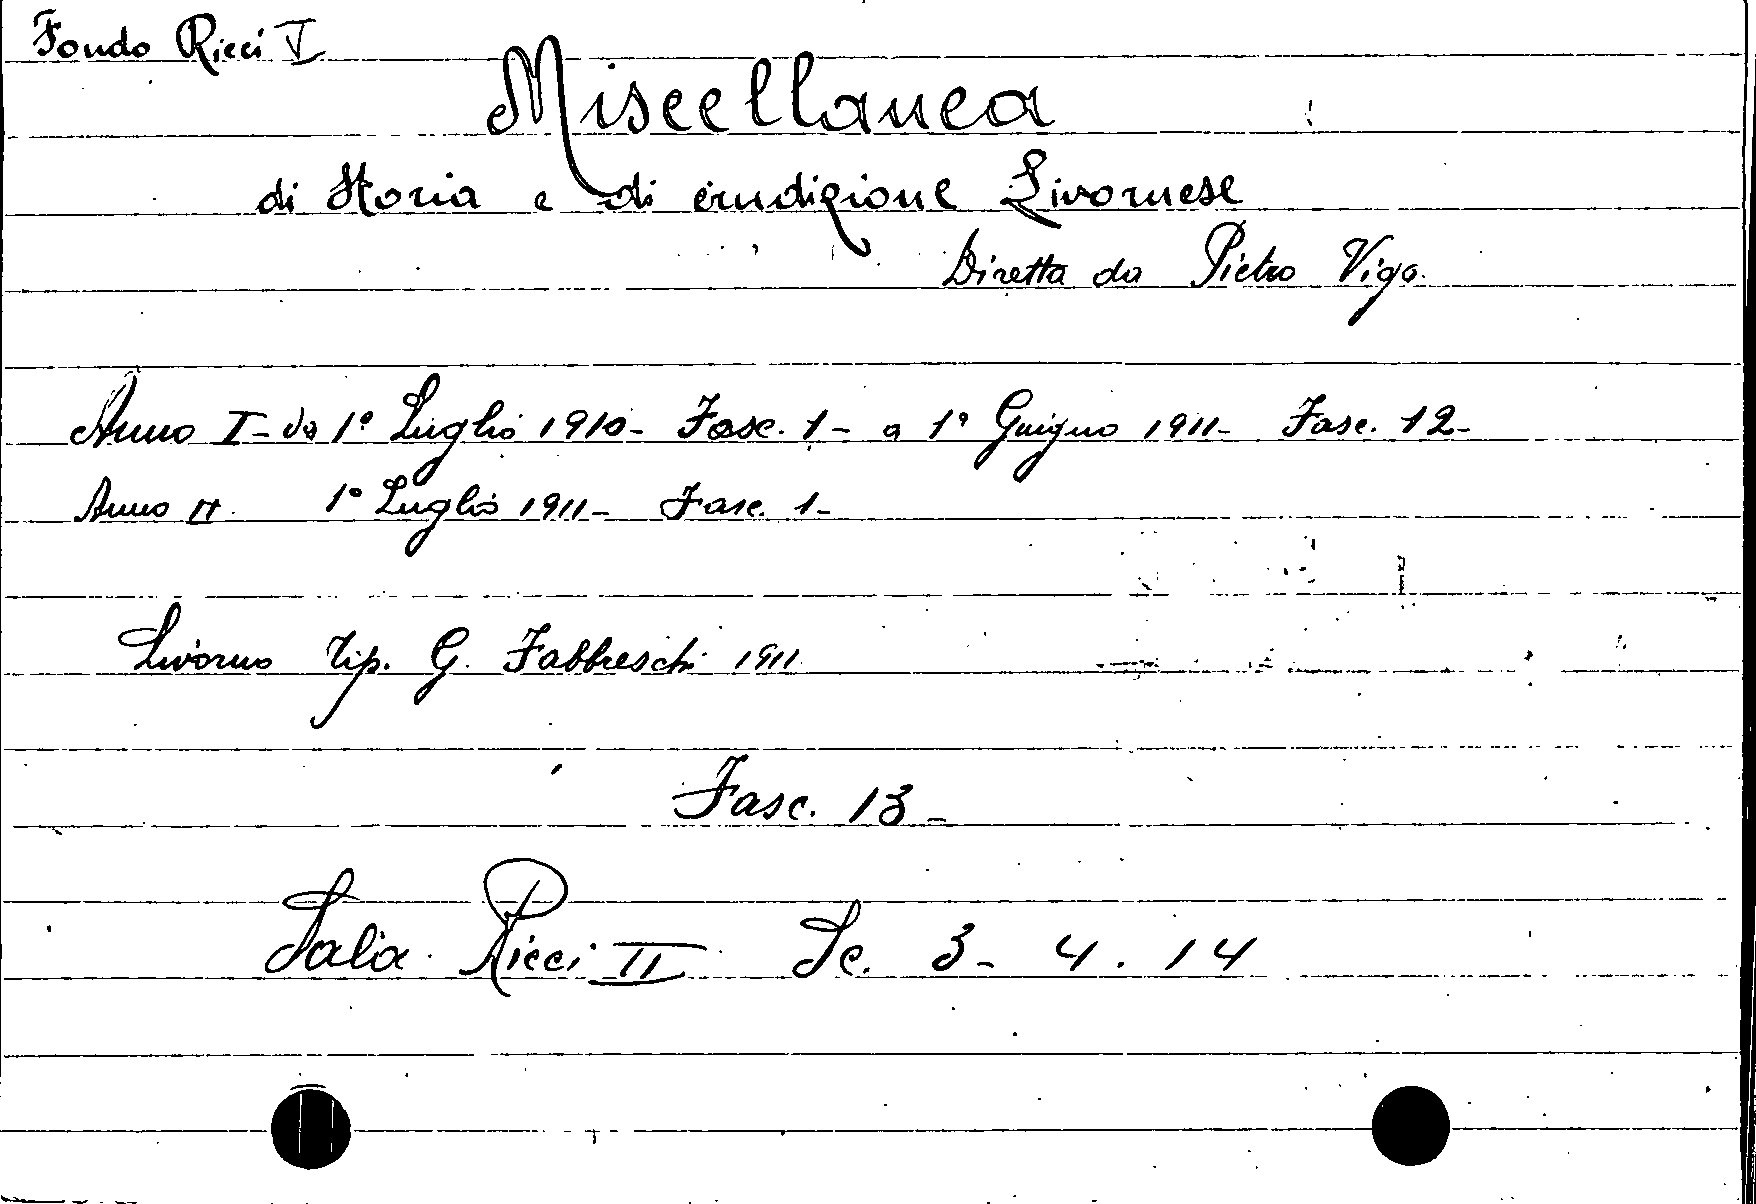 Fondo Ricci I
Miscellanea
di Storia e di erudizione Livornese
Diretta da Pietro Vigo.
Anno I - da 1° Luglio 1910 - Fasc. 1 - a 1° Guigno 1911 - Fasc. 12 -
Anno II. 1° Luglio 1911 - Fasc. 1 -
Livorno Tip. G. Fabbreschi 1911
Fasc. 13 -
Sala Ricci II Sc. 3 - 4. 14